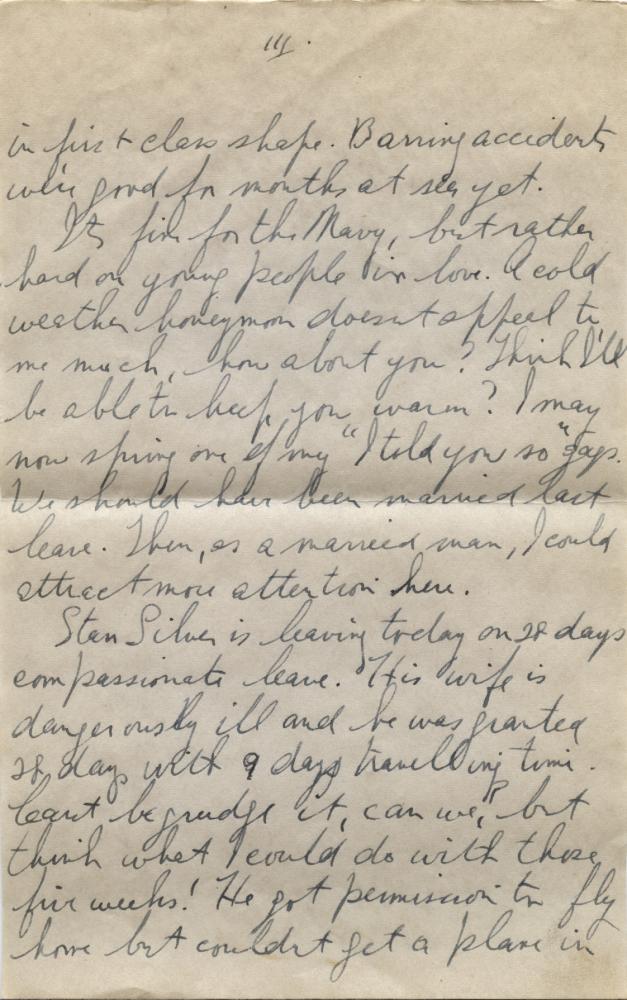 III.
in first class shape. Barring accidents
we're good for months at sea yet.
Its fine for the Navy, but rather
hard on young people in love. A cold
weather honeymoon doesnt appeal to
me much, how about you? Think I'll
be able to keep you warm? I may
now spring one of my "I told you so" gags.
We should have been married last
leave. Then, as a married man, I could
attract more attention here.
Stan Silver is leaving today on 28 days
compassionate leave. His wife is
dangerously ill and he was granted
28 days with 9 days travelling time.
Cant begrudge it, can we, but
think what I could do with those
five weeks! He got permission to fly
home but couldnt get a plane in